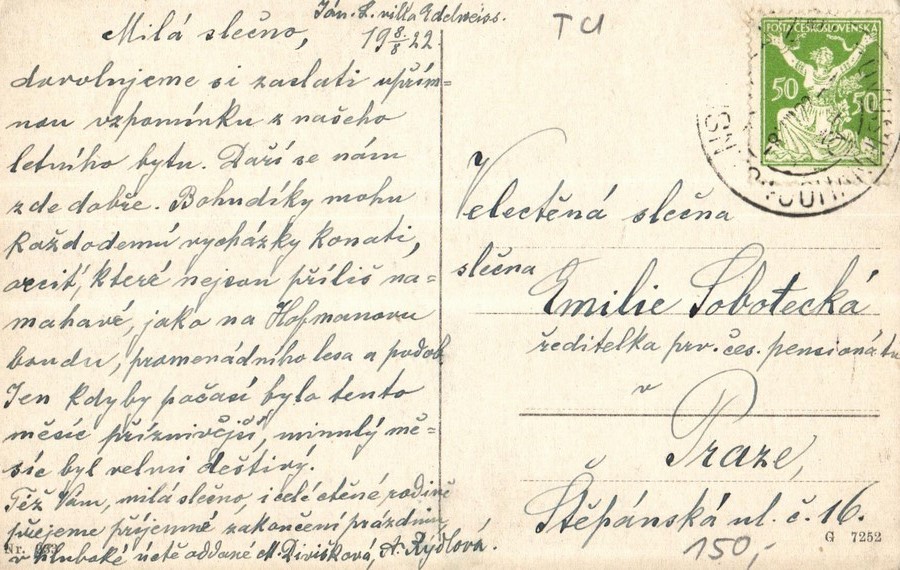 Ján. L. villa Edelweiss.
19 8/8 22.
Milá slečno,
dovolujeme si zaslati upřím=
nou vzpomínku z našeho
letního bytu. Daří se nám
zde dobře. Bohudíky mohu
každodemú vycházky konati,
ovcit, které nejsou příliš na=
mahavé, jako na Hofmanovu
boudu, promenádního lesa a podob.
Jen kdyby počasí bylo tento
měsíc příznivější, minulý mě=
síc byl velmi deštivý.
Též Vám, milá slečno, i celé ctěné rodině
přejeme příjemné zakončení prázdnin,
v hluboké úctě oddané M. Divišková, A. Rýdlová.
Nr.
TU
POŠTA ČESKOSLOVENSKÁ
50 50
Velectěná slečna
slečna
Emilie Sobotecká
ředitelka prv. čes. pensionátu
v
Praze,
Štěpánská ul. č. 16.
150,-
G 7252